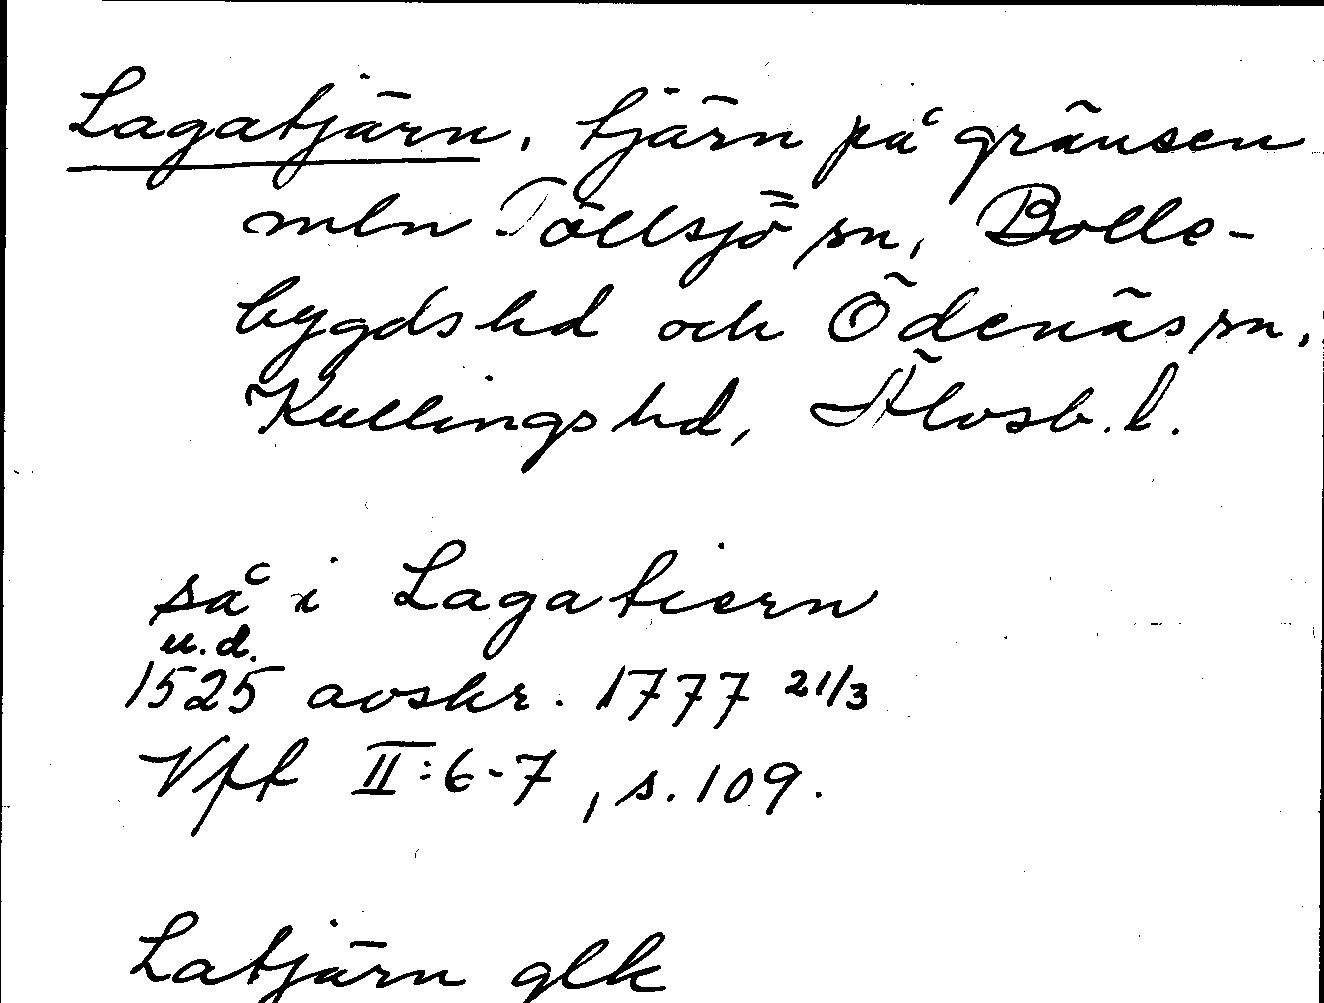 Lagatjärn, tjärn på gränsen
mln Töllsjö sn, Bolle-
bygds hd och Ödenäs sn,
Kullings hd, Älvsb. l.
så i Lagatiern
u.d.
1525 avskr. 1777 21/3
Vft II:6-7, s. 109.
Latjärn glk